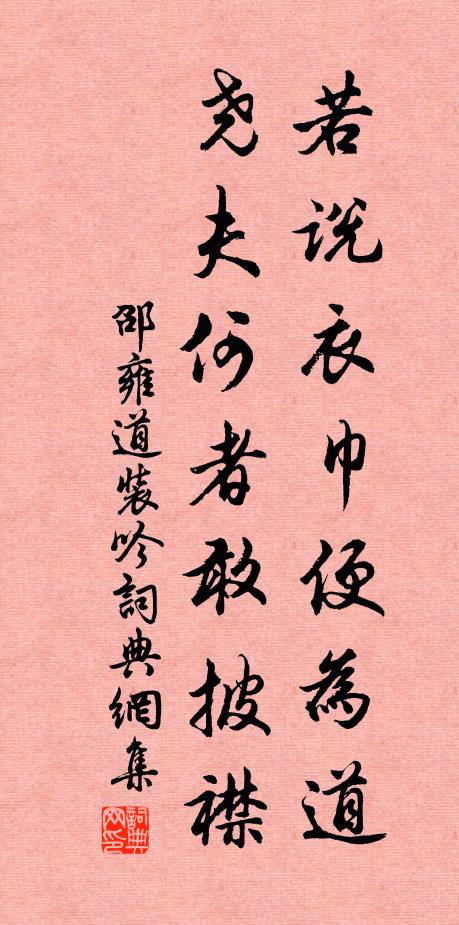 若说衣巾便為道
尧夫何者敢披襟
邵雍道装吟詞典網集
詞典网印